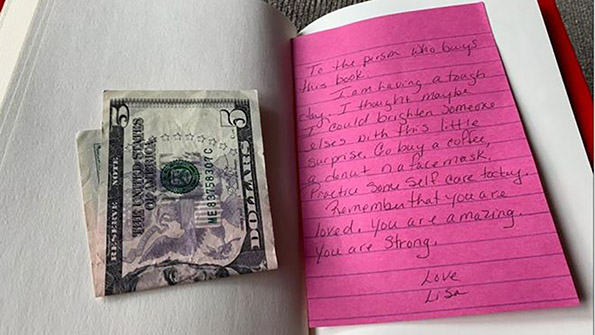 5
5
RESERVE NOTE
THE UNITED STATES
OF AMERICA
ME83758307C
DOLLARS
To the person who buys
this book.
I am having a tough
day. I thought maybe
I could brighten someone
elses with this little
surprise. Go buy a coffee,
a donut or a face mask.
Practice some self care today.
Remember that you are
loved. You are amazing.
You are strong.
Love
Lisa